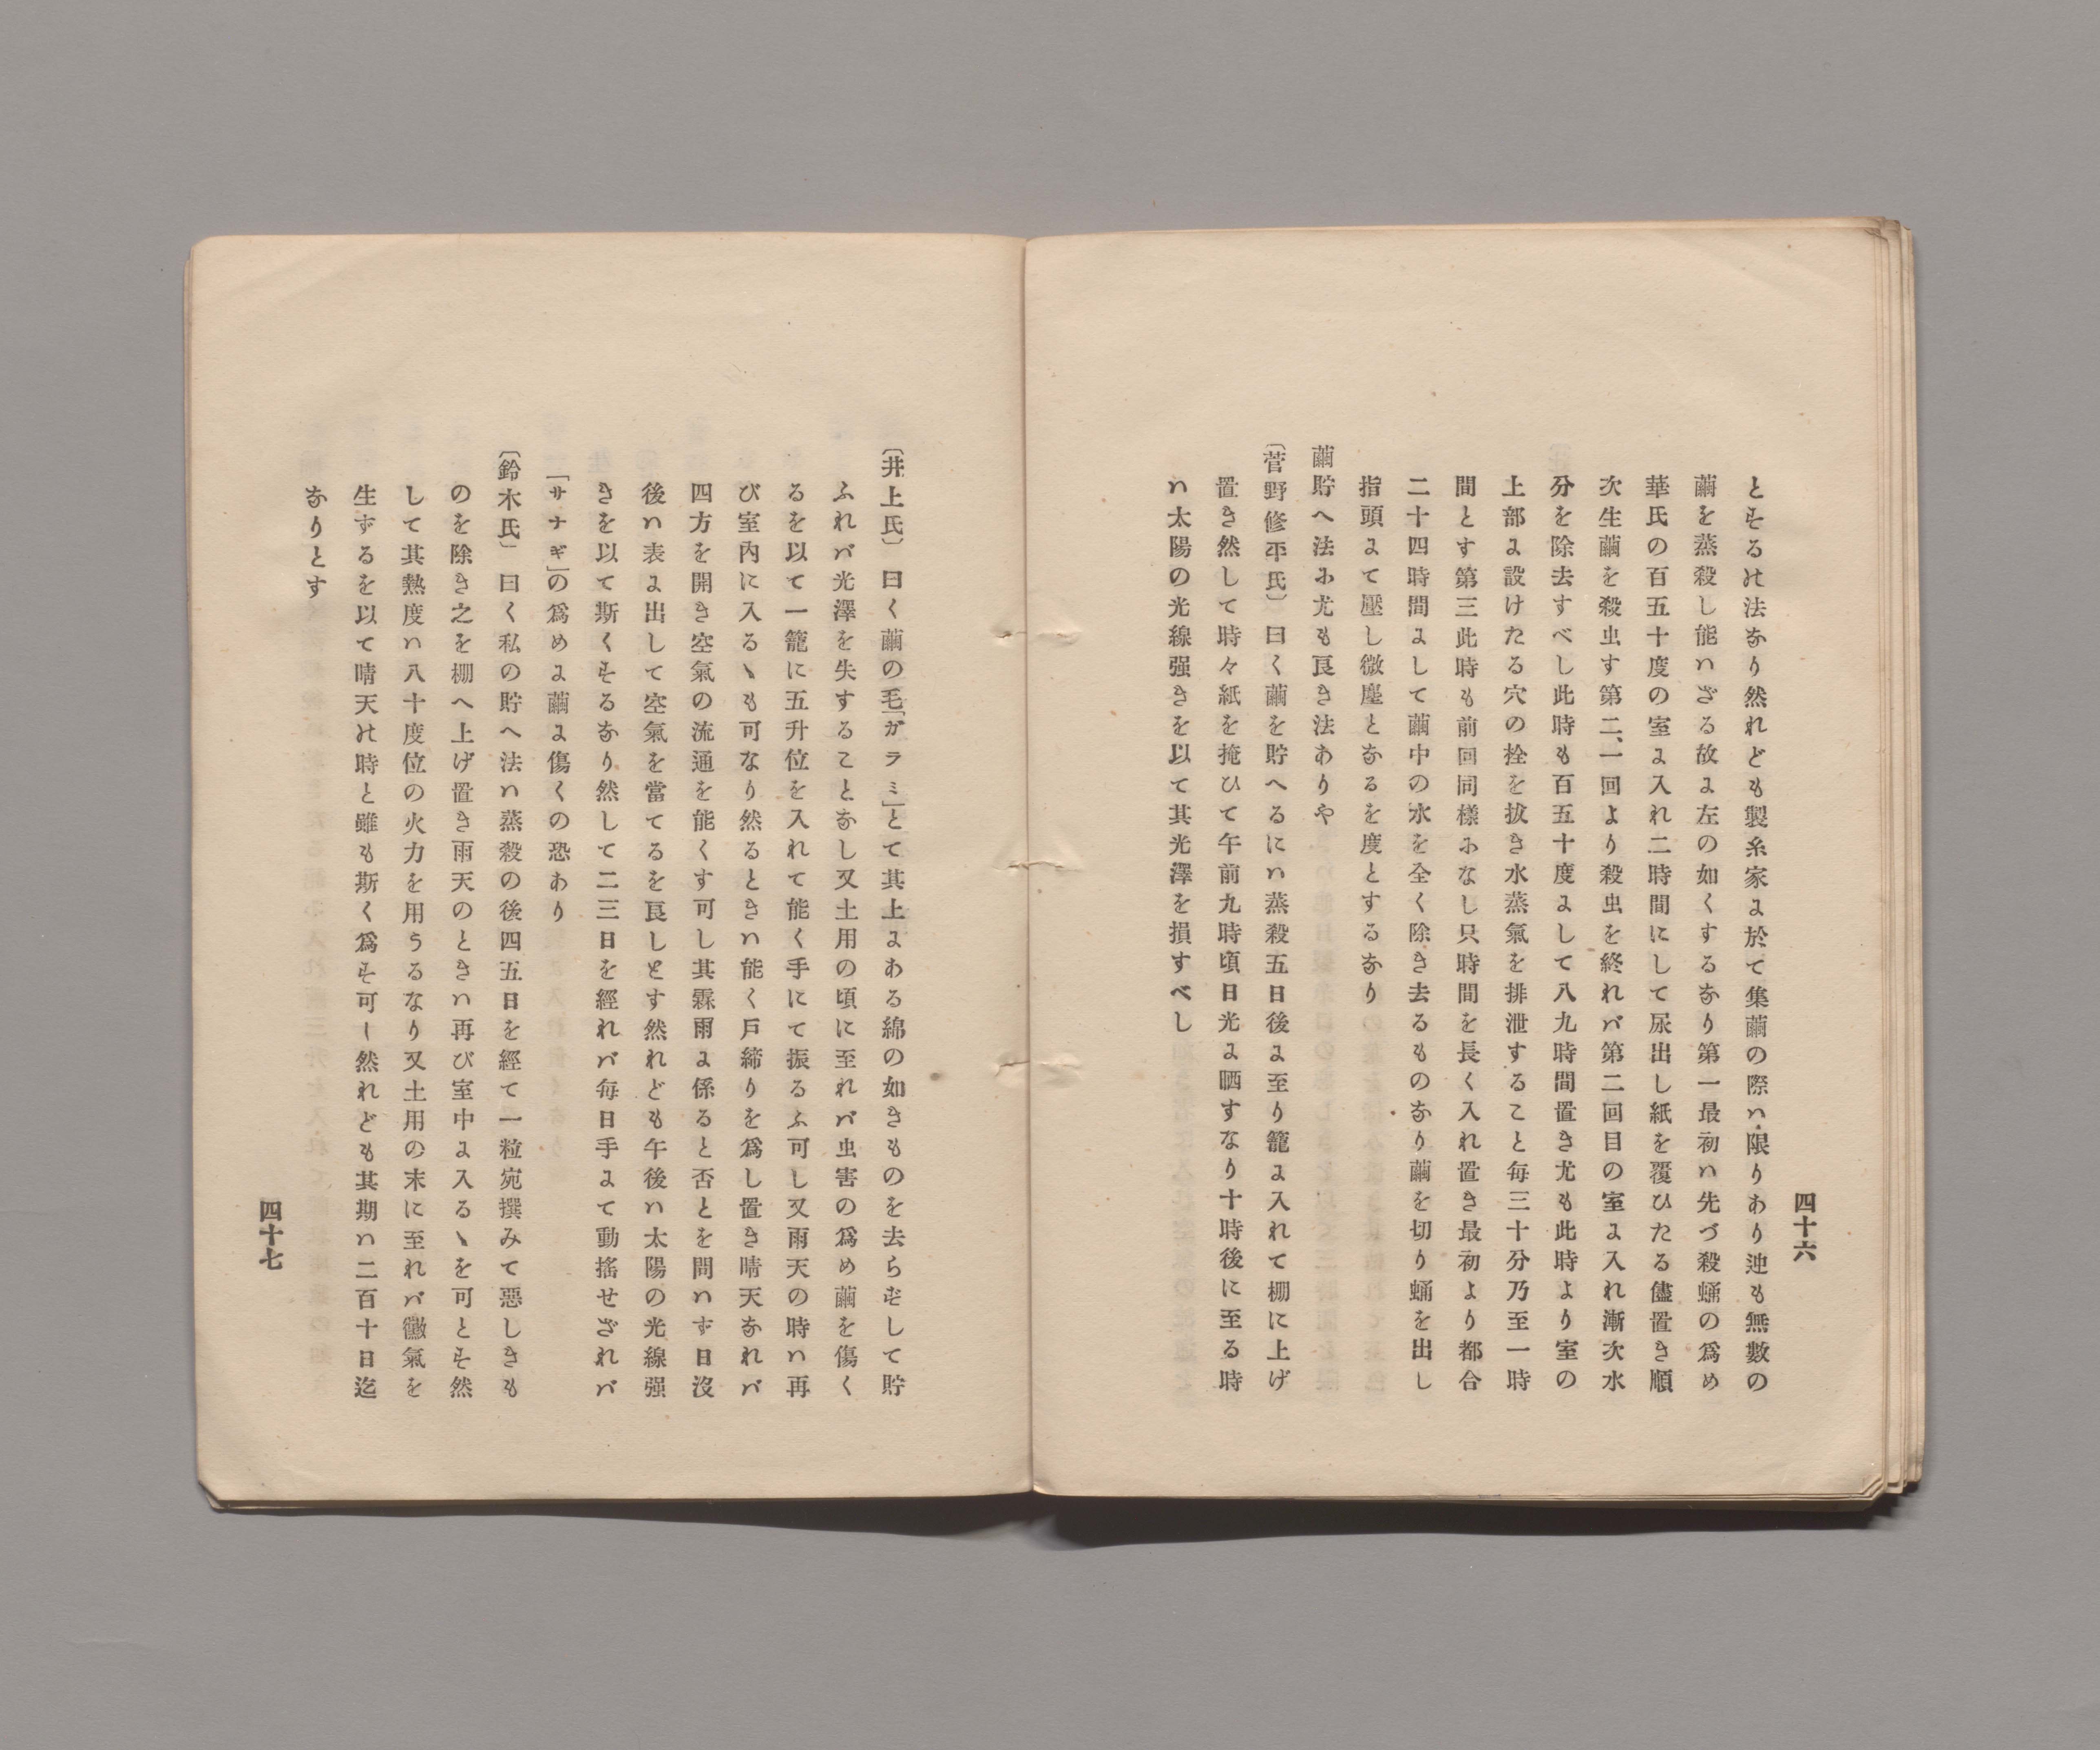 四十六
とするの法なり然れども製糸家に於て集繭の際ハ限りあり迚も無數の
繭を蒸殺し能ハざる故に左の如くするなり第一最初ハ先づ殺蛹の爲め
華氏の百五十度の室に入れ二時間にして尿出し紙を覆ひたる儘置き順
次生繭を殺虫す第二、一回より殺虫を終れバ第二回目の室に入れ漸次水
分を除去すべし此時も百五十度にして八九時間置き尤も此時より室の
上部に設けたる穴の栓を拔き水蒸氣を排泄すること毎三十分乃至一時
間とす第三此時も前回同樣になし只時間を長く入れ置き最初より都合
二十四時間にして繭中の水を全く除き去るものなり繭を切り蛹を出し
指頭にて壓し微塵となるを度とするなり
繭貯へ法に尤も良き法ありや
〔菅野修平氏〕曰く繭を貯へるにハ蒸殺五日後に至り籠に入れて棚に上げ
置き然して時々紙を掩ひて午前九時頃日光に晒すなり十時後に至る時
ハ太陽の光線强きを以て其光澤を損すべし
〔井上氏〕曰く繭の毛「ガラミ」とて其上にある綿の如きものを去らずして貯
ふれバ光澤を失することなし又土用の頃に至れバ虫害の爲め繭を傷く
るを以て一籠に五升位を入れて能く手にて振るふ可し又雨天の時ハ再
び室內に入るゝも可なり然るときハ能く戸締りを爲し置き晴天なれバ
四方を開き空氣の流通を能くす可し其霖雨に係ると否とを問ハず日沒
後ハ表に出して空氣を當てるを良しとす然れども午後ハ太陽の光線强
きを以て斯くするなり然して二三日を經れバ每日手にて動搖せざれバ
「サナギ」の爲めに繭に傷くの恐あり
〔鈴木氏〕曰く私の貯へ法ハ蒸殺の後四五日を經て一粒宛撰みて惡しきも
のを除き之を棚へ上げ置き雨天のときハ再び室中に入るゝを可とす然
して其熱度ハ八十度位の火力を用うるなり又土用の末に至れバ黴氣を
生ずるを以て晴天の時と雖も斯く爲す可し然れども其期ハ二百十日迄
なりとす
四十七